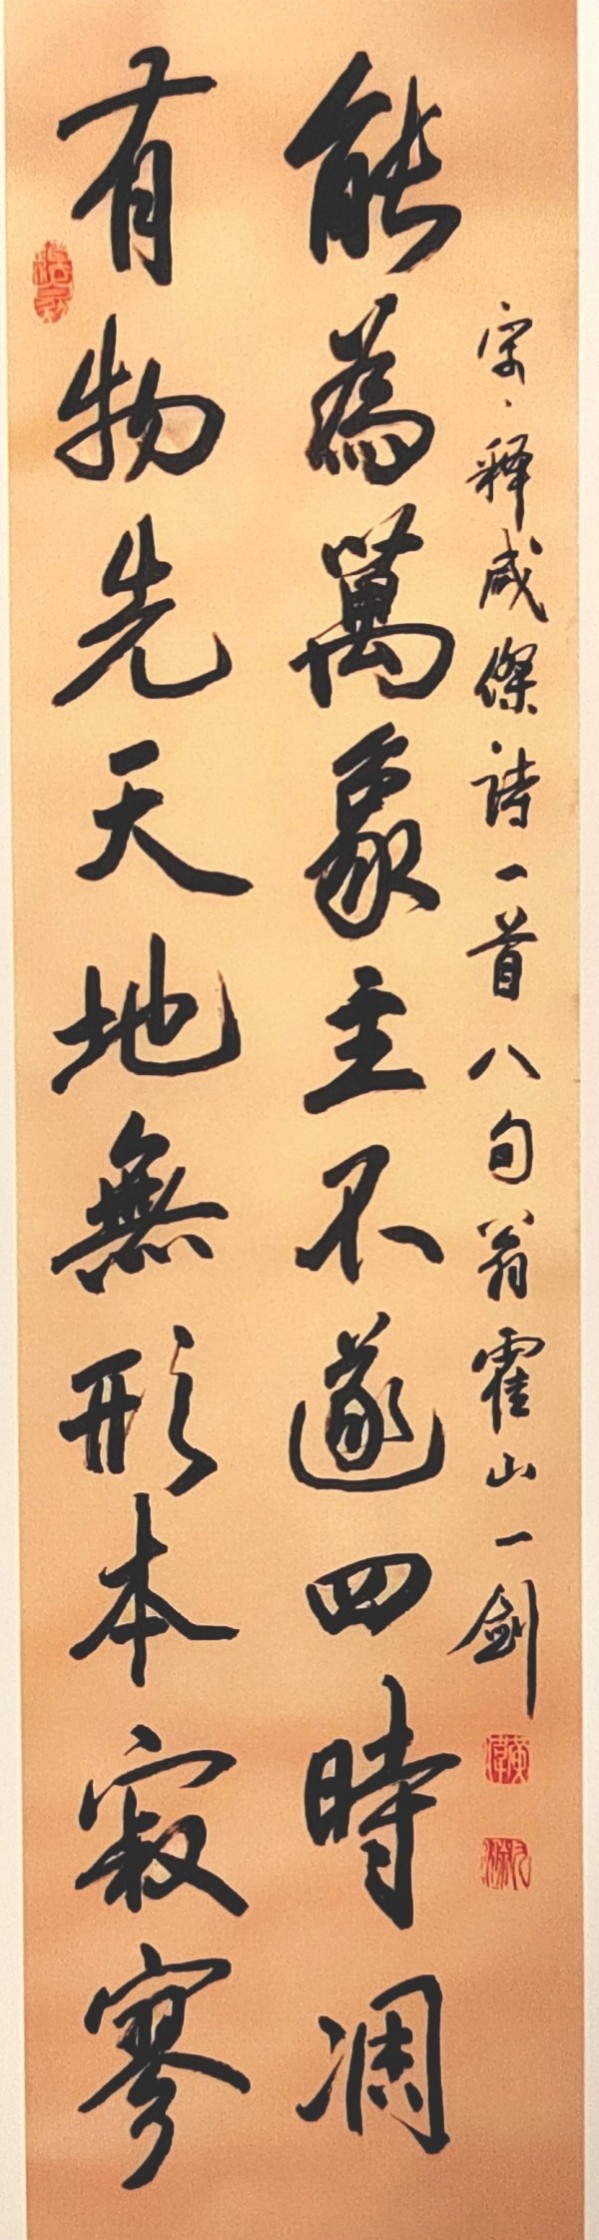 有物先天地無形本寂寥
能為萬象主不遂四時凋
宋、释咸傑詩一首八旬翁霍山一劍